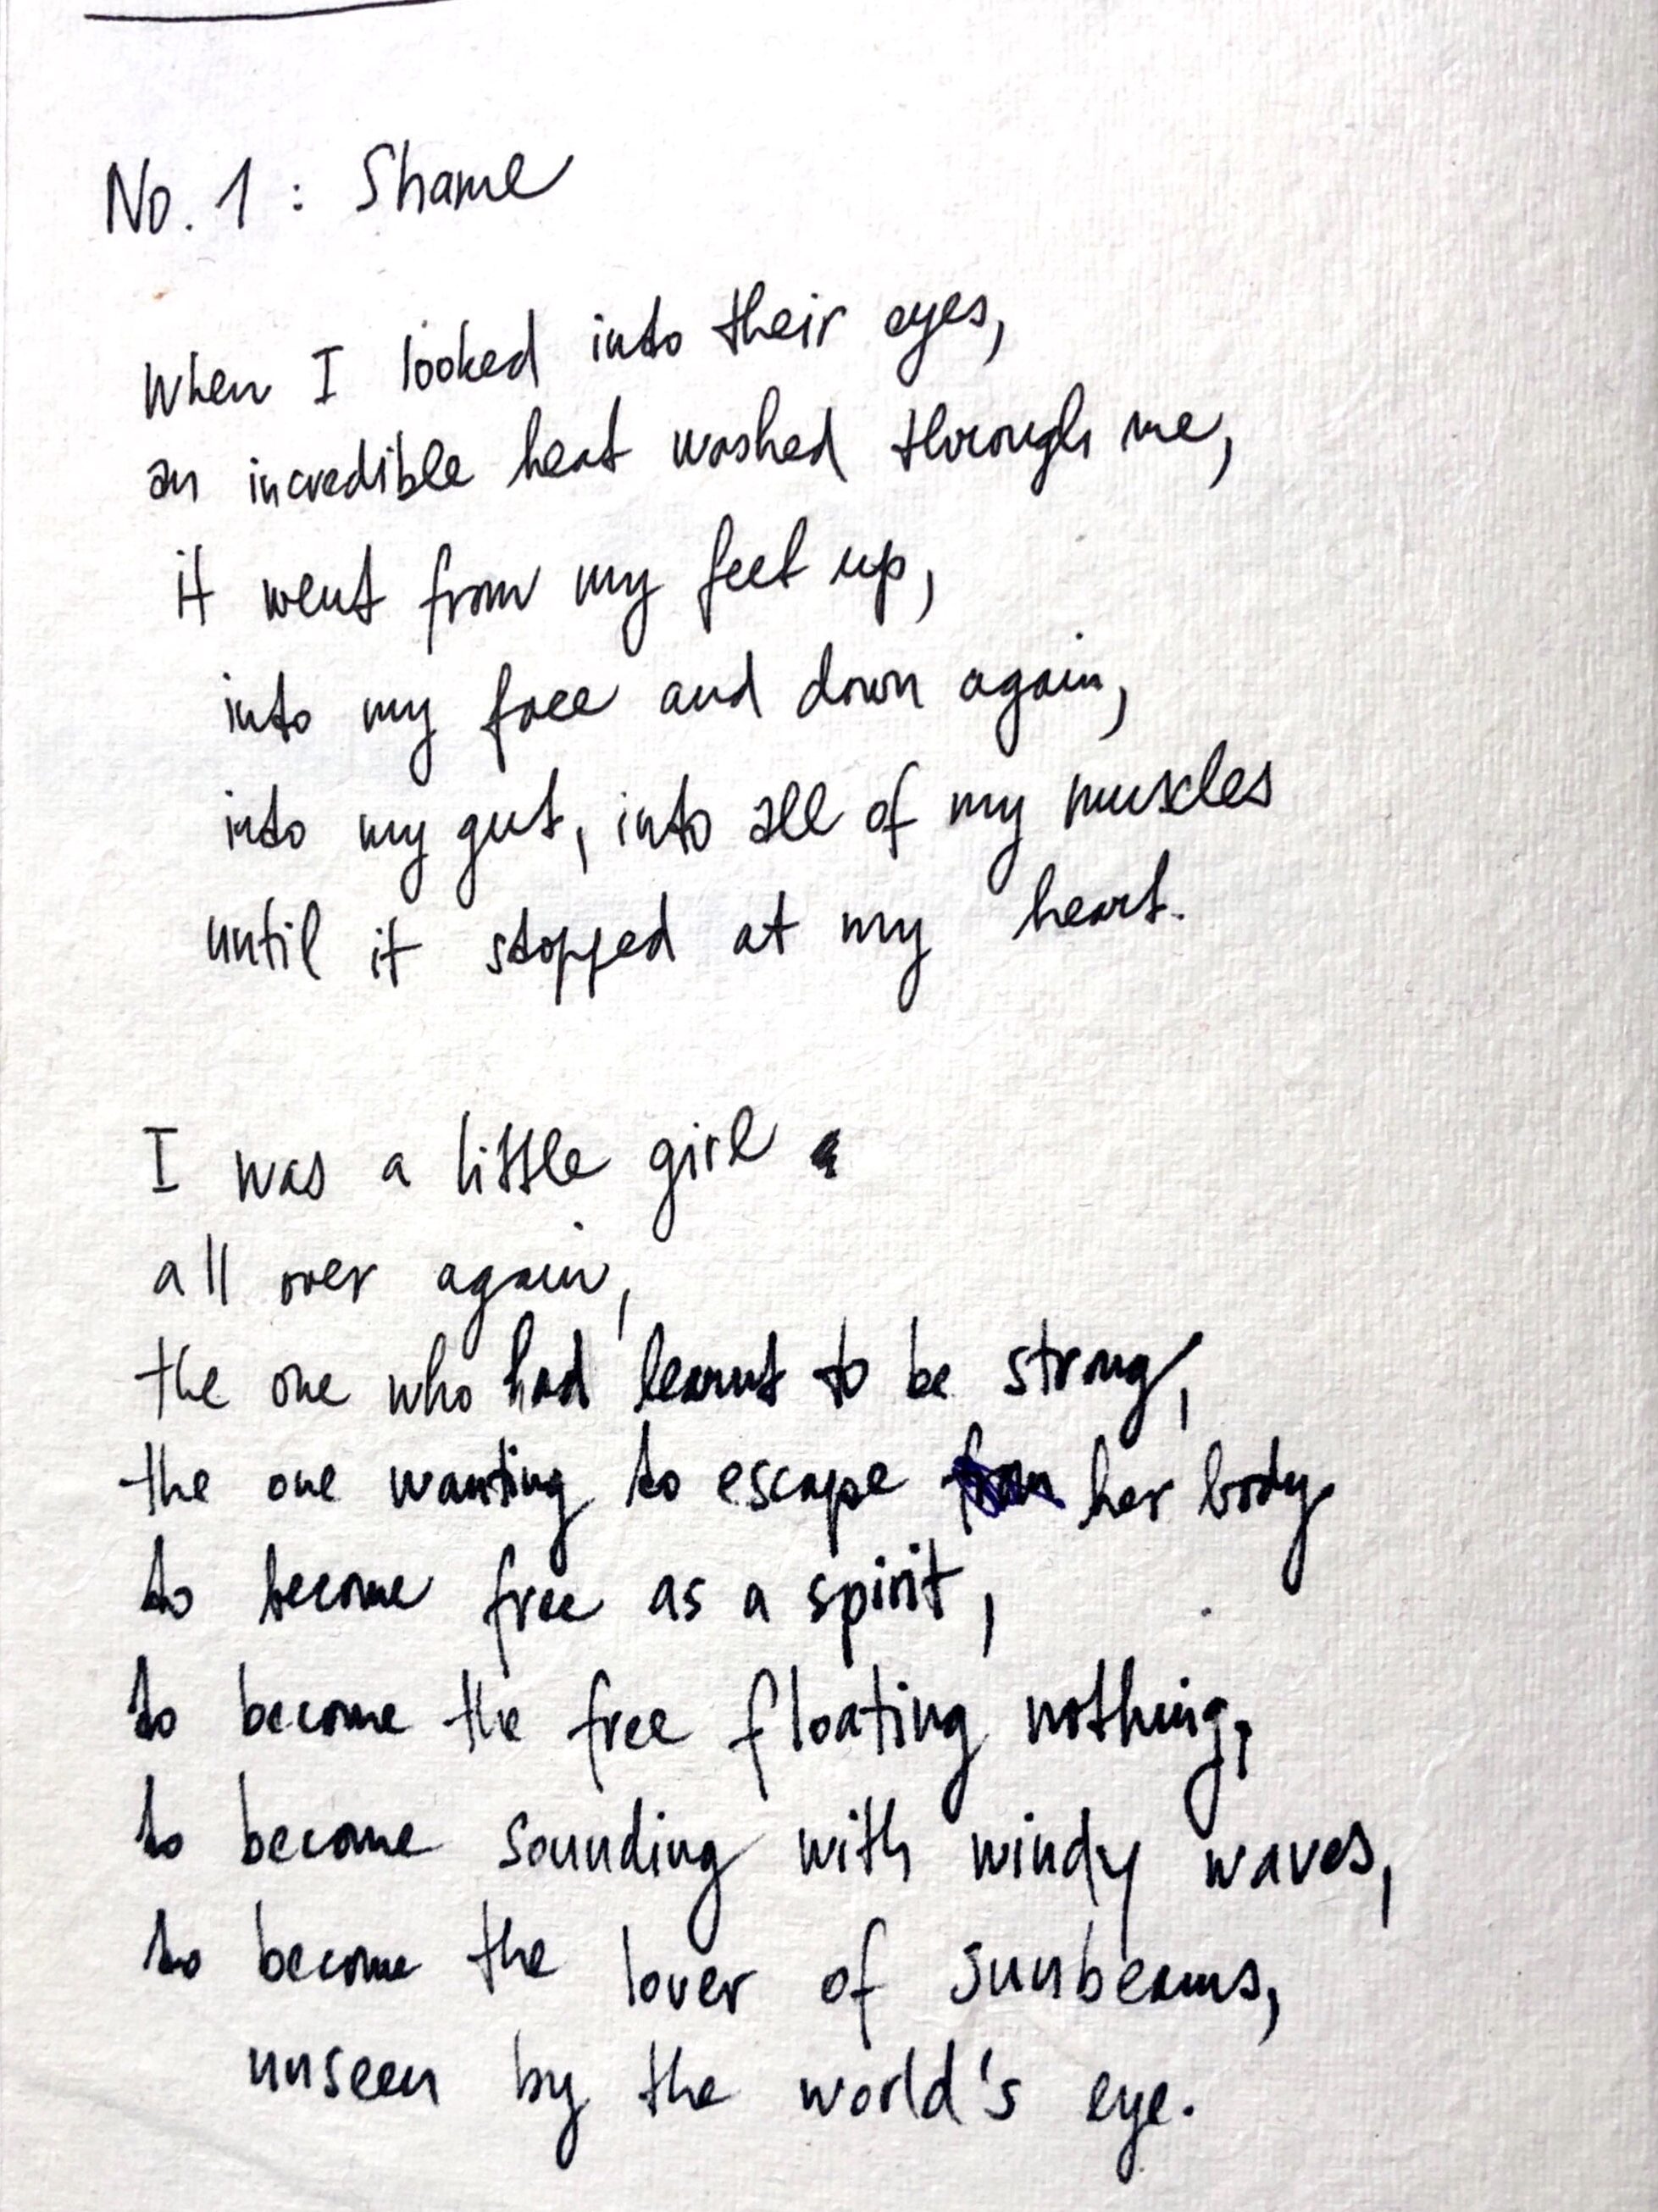 No. 1 : Shame
When I looked into their eyes,
an incredible heat washed through me,
it went from my feet up,
into my face and down again,
into my gut, into all of my muscles
until it stopped at my heart.
I was a little girl
all over again,
the one who had learnt to be strong,
the one wanting to escape her body
to become free as a spirit,
to become the free floating nothing,
to become sounding with windy waves,
to become the lover of sunbeams,
unseen by the world's eye.